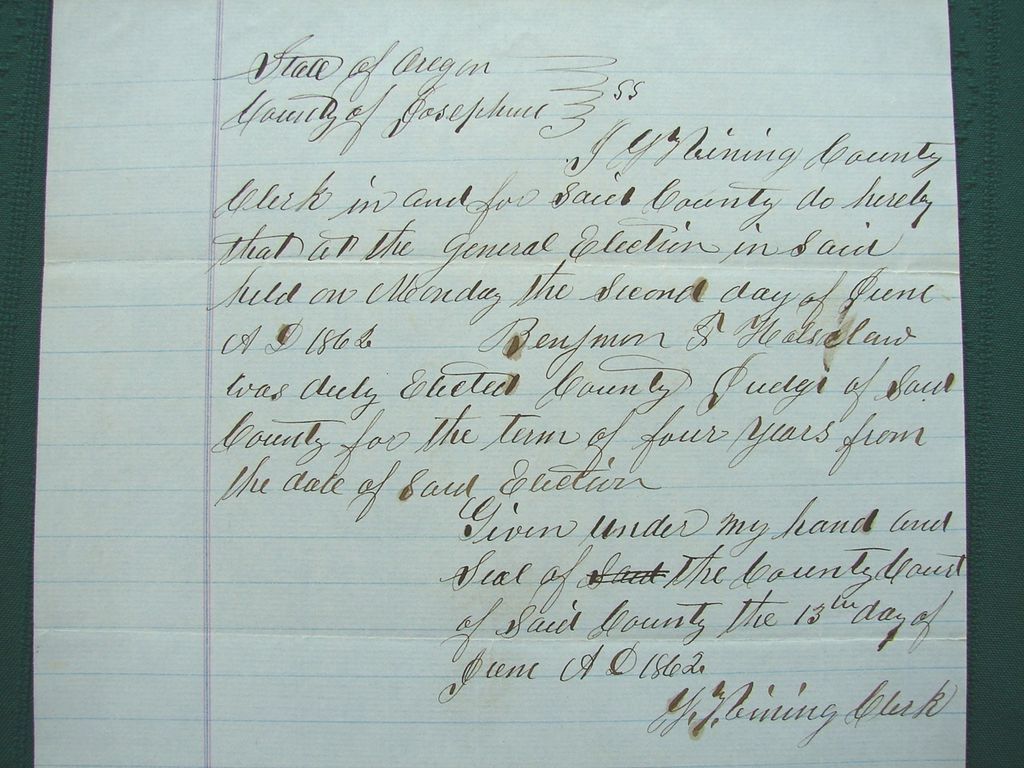 State of Oregon
County of Josephine ss
I Vining County
Clerk in and for said County do hereby
that at the General Election in said
held on Monday the second day of June
A D 1862 Benjmon F Holsclaw
was duly Elected County Judge of said
County for the term of four years from
the date of said Election
Given under my hand and
Seal of said the County Court
of said County the 13th day of
June A D 1862
Vining Clerk